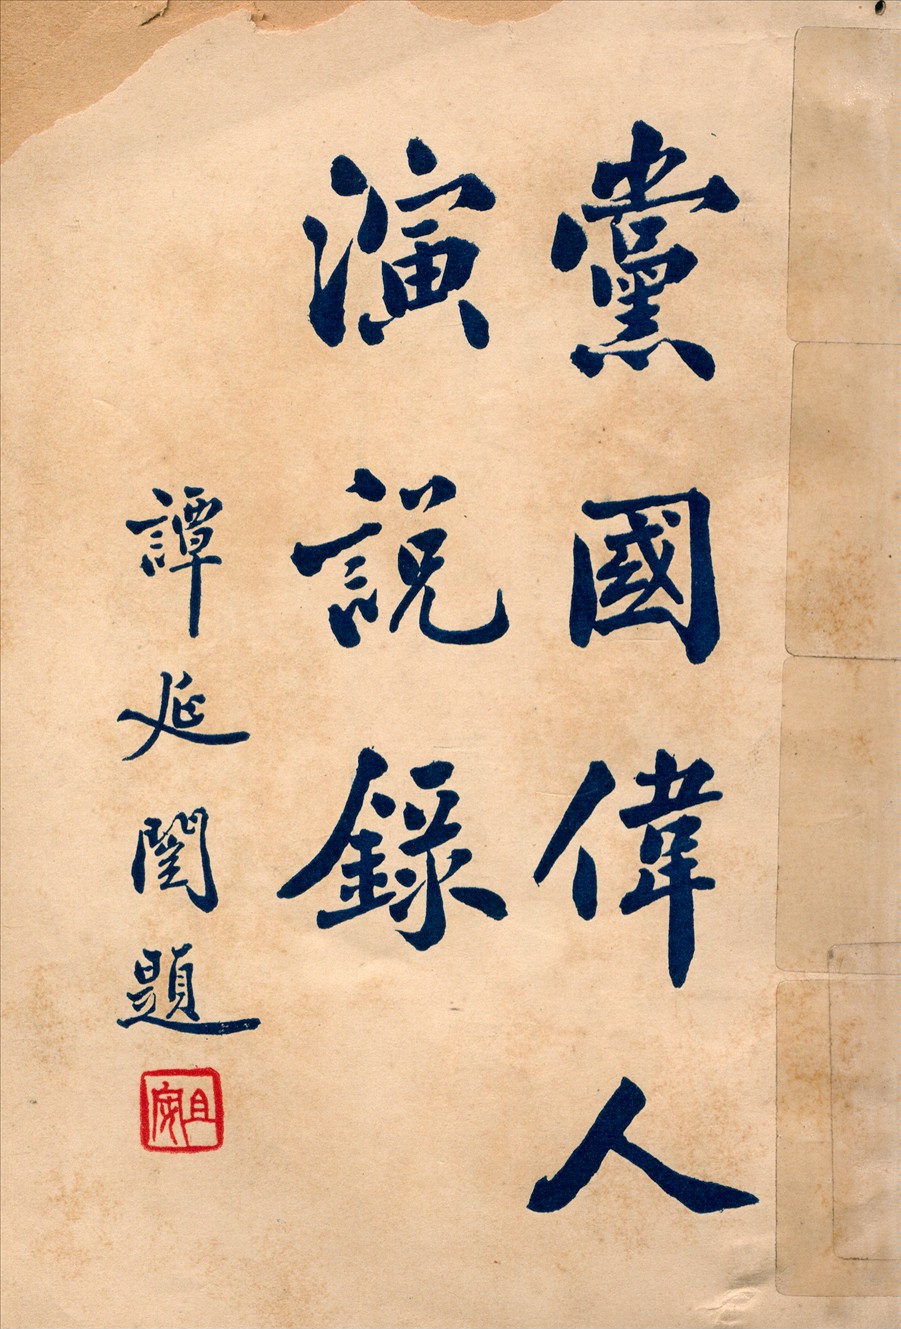 黨國偉人
演說錄
譚延闓題